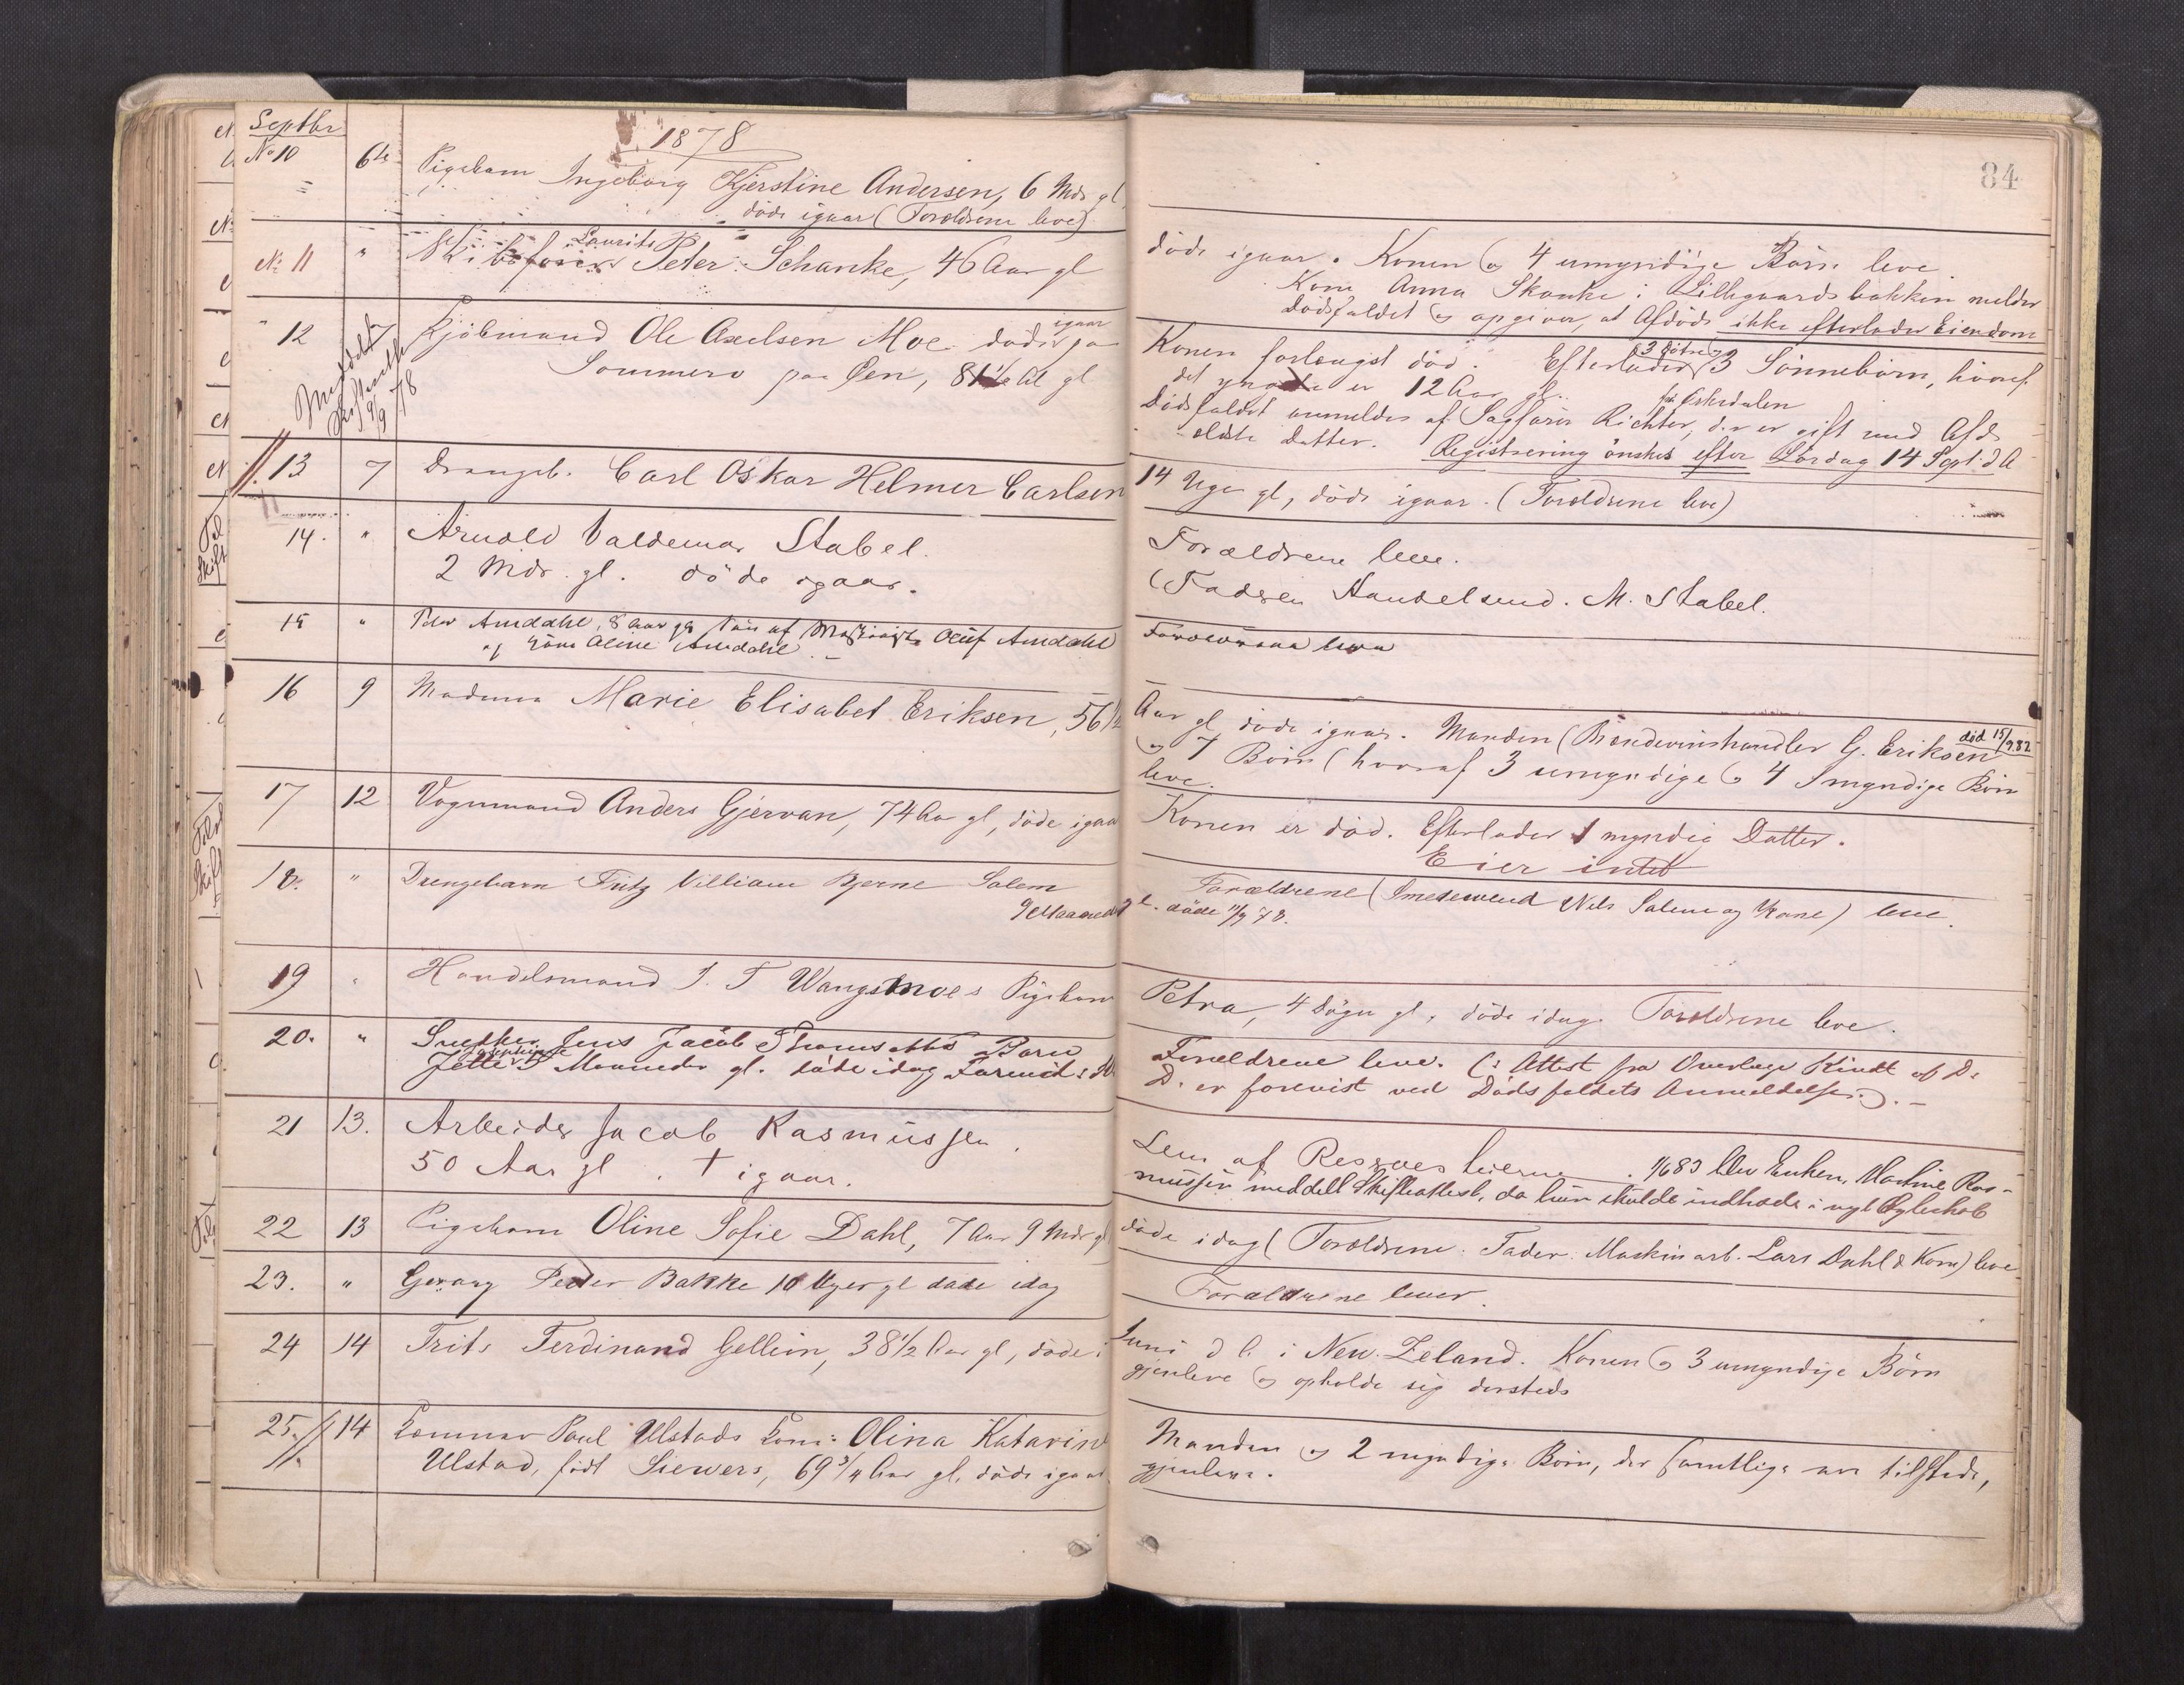 Septbr
1878
84
No 10 6te Pigebarn Ingeborg Kjerstine Andersen, 6 Mdr gl,
døde igaar (Forældrene leve)
No 11 " Skibsfører Laurits Peter Schanke, 46 Aar gl
døde igaar. Konen og 4 umyndige Børn leve.
Kone Anna Skanke i Lillegaardsbakken melder
Dødsfaldet og opgiver, at Afdøde ikke efterlader Eiendom
" 12 7 Kjøbmand Ole Axelsen Moe døde igaar paa
Sommero paa Øen, 81 1/2 Al gl
Meddelt
Skifteatte
19/9 78
Konen forlængst død. Efterlader 3 Døtre og 3 Sønnebørn, hvoraf
det yngste er 12 Aar gl. fra Østerdalen
Dødsfaldet anmeldes af Sagfører Richter, der er gift med Afd.
ældste Datter. Registrering ønskes efter Lørdag 14 Sept. d A
13 7 Drengeb. Carl Oskar Helmer Carlsen
14 Uger gl, døde igaar. (Forældrene leve)
14. " Arnold Valdemar Stabel.
2 Mdr. gl. døde igaar.
Forældrene leve.
(Faderen Handelsmd. M. Stabel.
15 " Peter Amdahl, 8 Aar gl Søn af Maskinist Oluf Amdahl
og Kone Oline Amdahl.
Forældrene leve
16 9 Madame Marie Elisabet Eriksen, 56 1/2
Aar gl, døde igaar. Manden (Brændevinshandler G. Eriksen død 15/9 82
og 7 Børn (hvoraf 3 umyndige og 4 myndige Børn
leve.
17 12 Vognmand Anders Gjervan, 74 Aar gl, døde igaar
Konen er død. Efterlader 1 myndig Datter.
Eier intet
18. " Drengebarn Fritz Villiam Bjerne Salem
9 Maaneder gl. døde 11/9 78.
Forældrene (Smedesvend Nils Salem og Kone) leve.
19 " Handelsmand J. T Wangsmoes Pigebarn
Petra, 4 Døgn gl, døde idag. Forældrene leve.
20. " Snedker Jens Jacob Thomsettes Barn
Jette Josephine 5 Maaneder gl. døde idag
Forældrene leve. (: Attest fra Overlæge Kindt af D.
D. er forevist ved Dødsfaldets Anmeldelse.:) . -
21 13. Arbeider Jacob Rasmussen.
50 Aar gl. † igaar.
Lem af Reserves leierne. 1/6 83 blev Enken, Martine Ras-
mussen meddelt Skifteattest, da hun skulde indtræde i nyt Egteskab
22 13 Pigebarn Oline Sofie Dahl, 7 Aar 9 Mdr gl
døde idag (Forældrene: Fader: Maskinarb. Lars Dahl & Kone) leve
23. " Georg Peder Bakke 10 Uger gl døde idag
Forældrene lever.
24 14 Frits Ferdinand Gellein, 38 1/2 Aar gl, døde i
Juni d A. i New-Zeland. Konen og 3 umyndige Børn
gjenleve og opholde sig dersteds
25. 14 Tømmer Paul Ulstads Kone: Olina Katarina
Ulstad, født Siewers, 69 3/4 Aar gl. døde igaar.
Manden og 2 myndige Børn, der samtlige ere tilstede,
gjenleve.